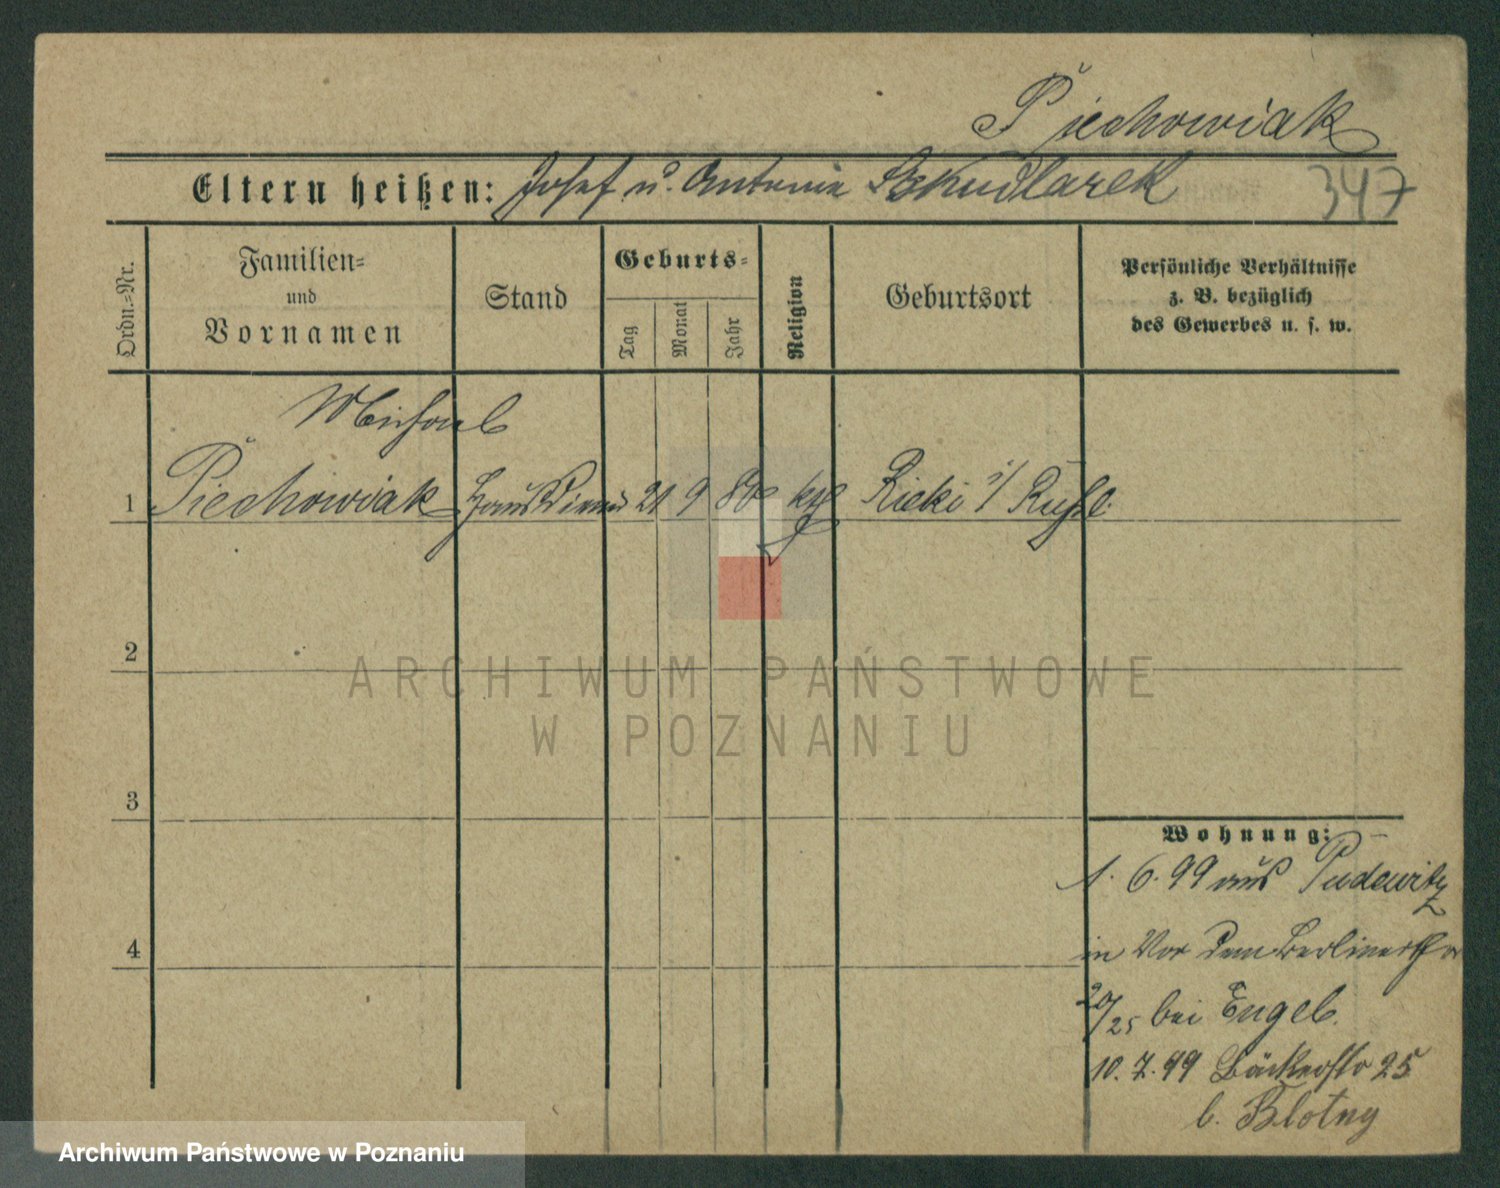 Piechowiak
Eltern heißen: Josef u. Antonia Szkudlarek 347
Ordn.=Nr.
Familien=
und
Vornamen
Stand
Geburts=
Tag
Monat
Jahr
Religion
Geburtsort
Persönliche Verhältnisse
z. B. bezüglich
des Gewerbes u. s. w.
Michael
1 Piechowiak Hausdiener 21 9 80 kth
2
3
4
Wohnung:
1. 6. 99 aus Pudewitz
in Vor dem Berlinerthor
20/25 bei Engel.
10. 7. 99 Bäckerstr 25
b. Blotny
ARCHIWUM PAŃSTWOWE
W POZNANIU
Archiwum Państwowe w Poznaniu